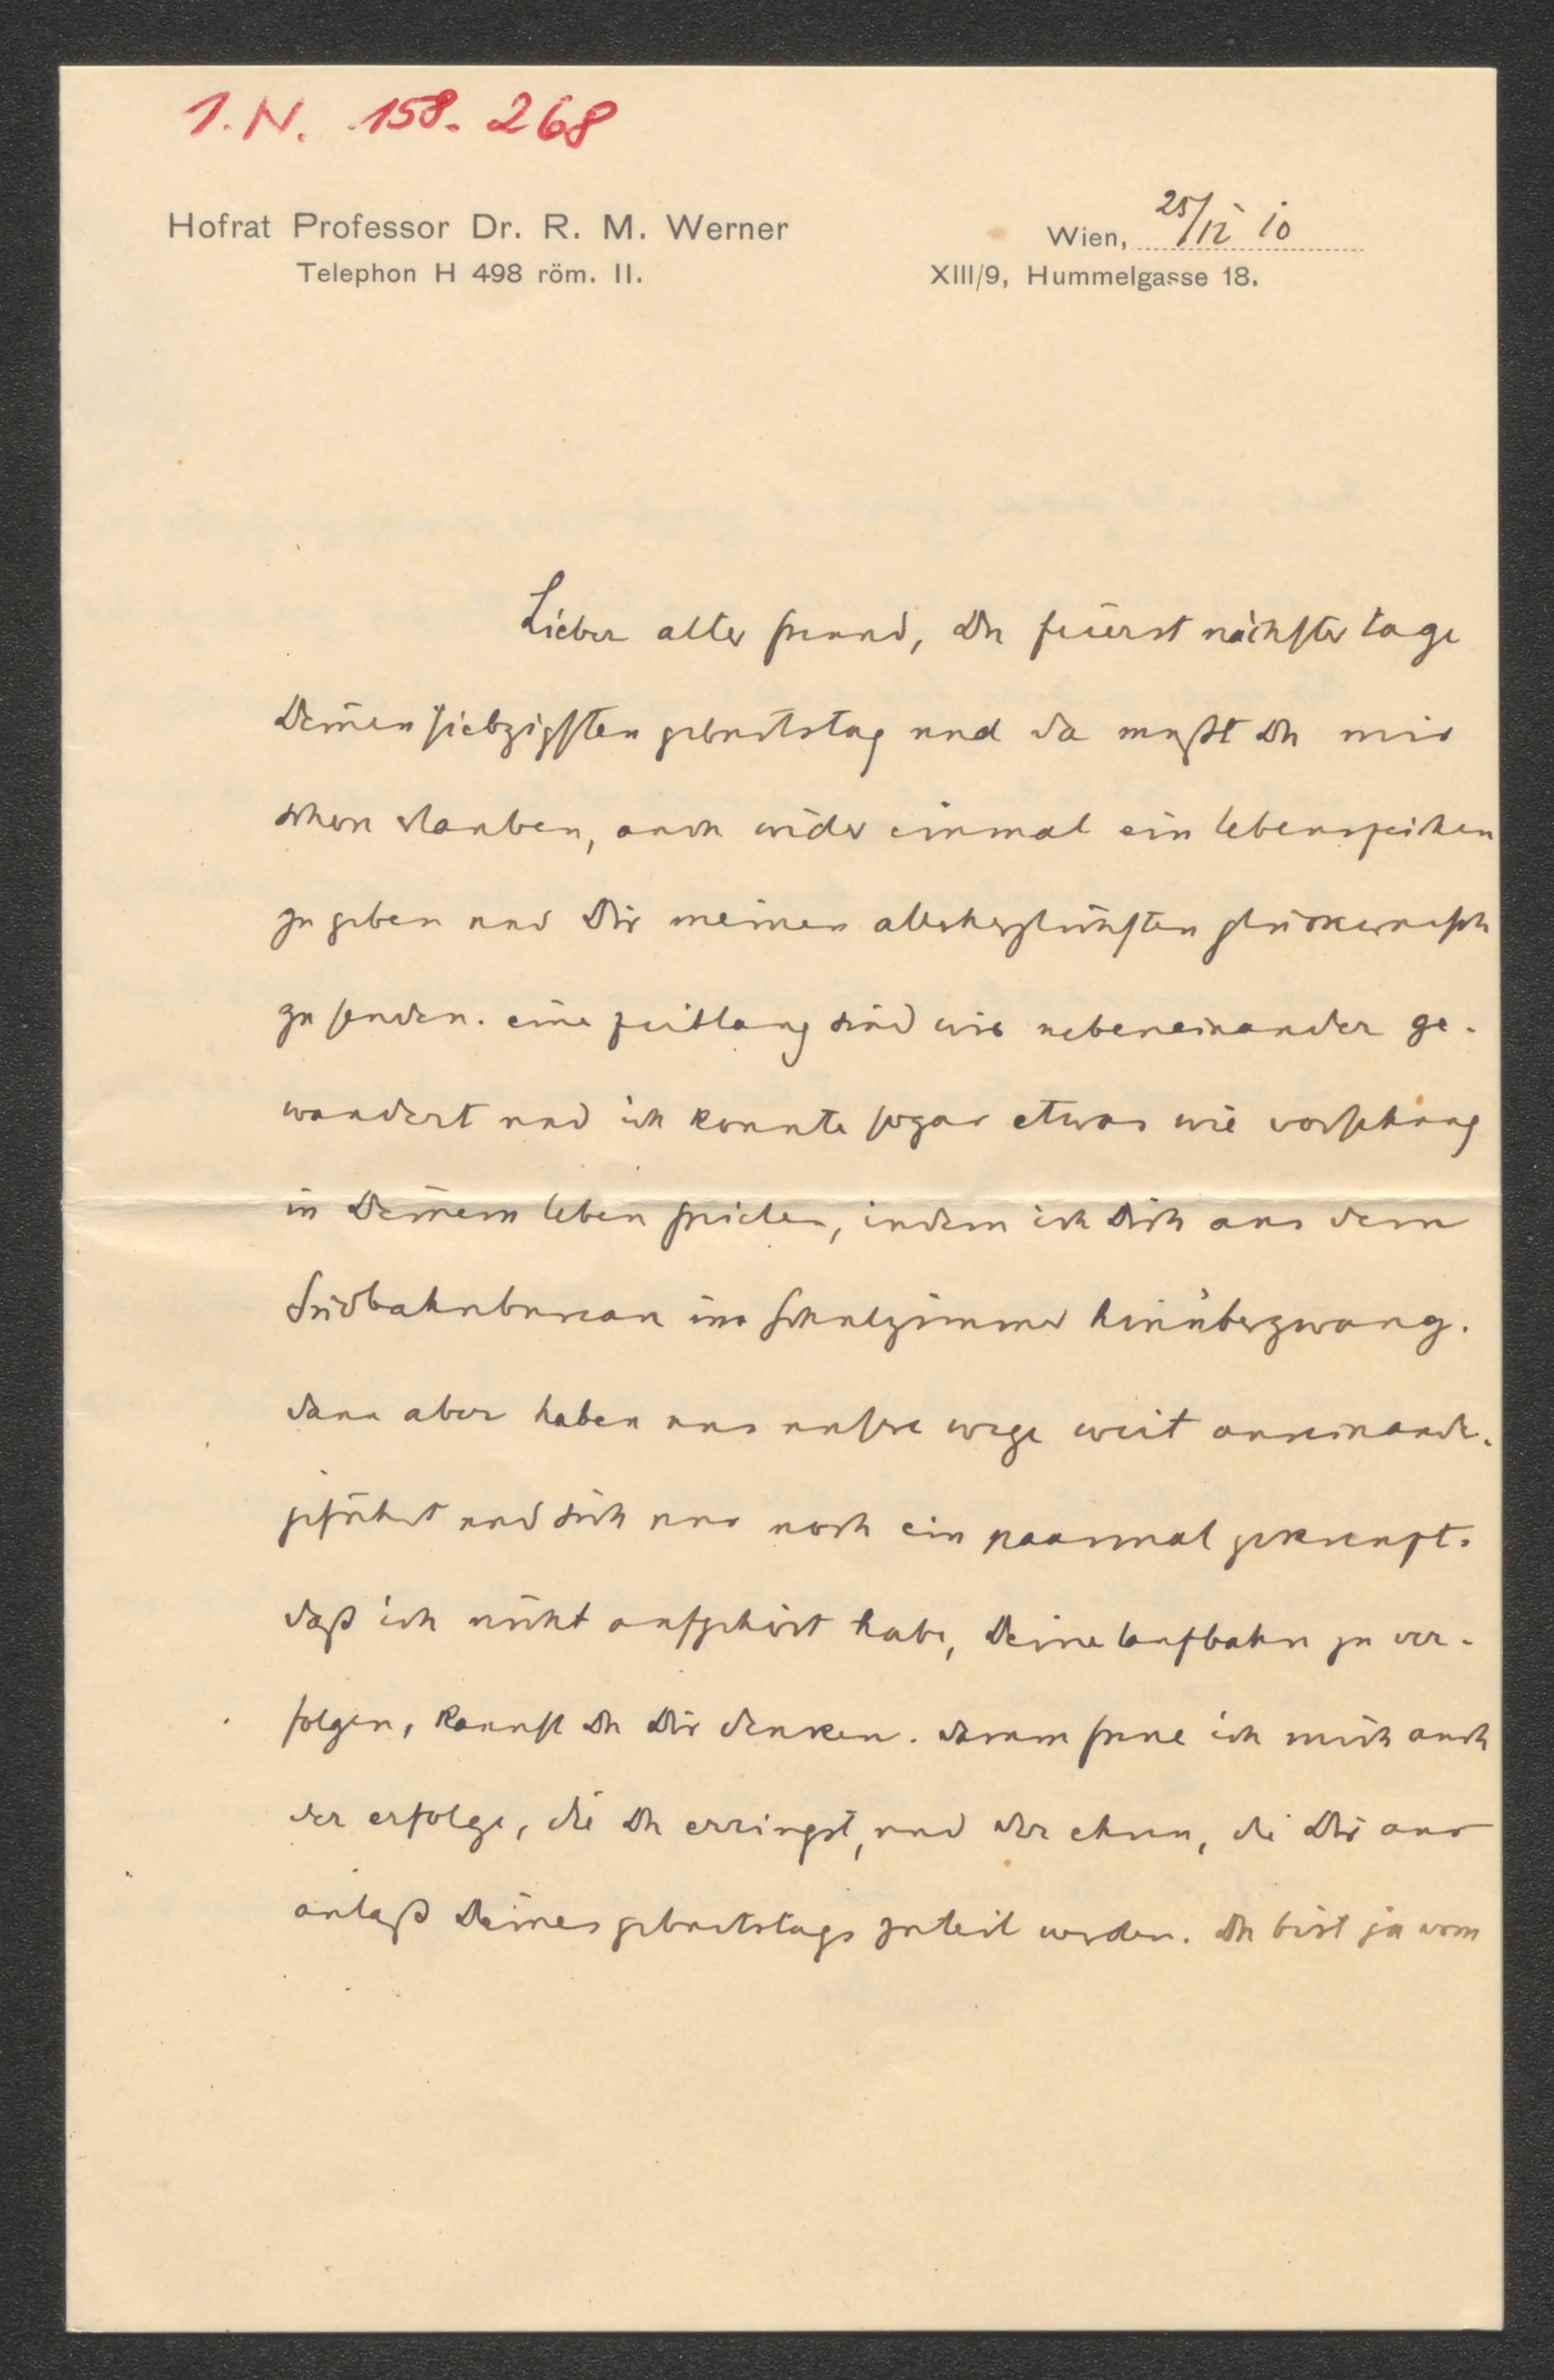 I. N. 158.268
Hofrat Professor Dr. R. M. Werner
Telephon H 498 röm. II.
Wien, 25/12 10
XIII/9, Hummelgasse 18.
Lieber alter freund, Du feierst nächster tage
Deinen siebzigsten geburtstag und da mußt Du mir
schon erlauben, auch wider einmal ein lebenszeichen
zu geben und Dir meinen allerherzlichsten glückwunsch
zu senden. eine zeitlang sind wir nebeneinander ge-
wandert und ich konnte sogar etwas wie vorsehung
in Deinem leben spielen, indem ich Dich aus dem
Südbahnbureau ins schulzimmer hinüberzwang.
dann aber haben uns unsre wege weit auseinander-
geführt und sich nur noch ein paarmal gekreuzt.
daß ich nicht aufgehört habe, Deine laufbahn zu ver-
folgen, kannst Du Dir denken. darum freue ich mich auch
der erfolge, die Du erringst, und der ehren, die Dir aus
anlaß Deines geburtstags zuteil werden. Du bist ja vom